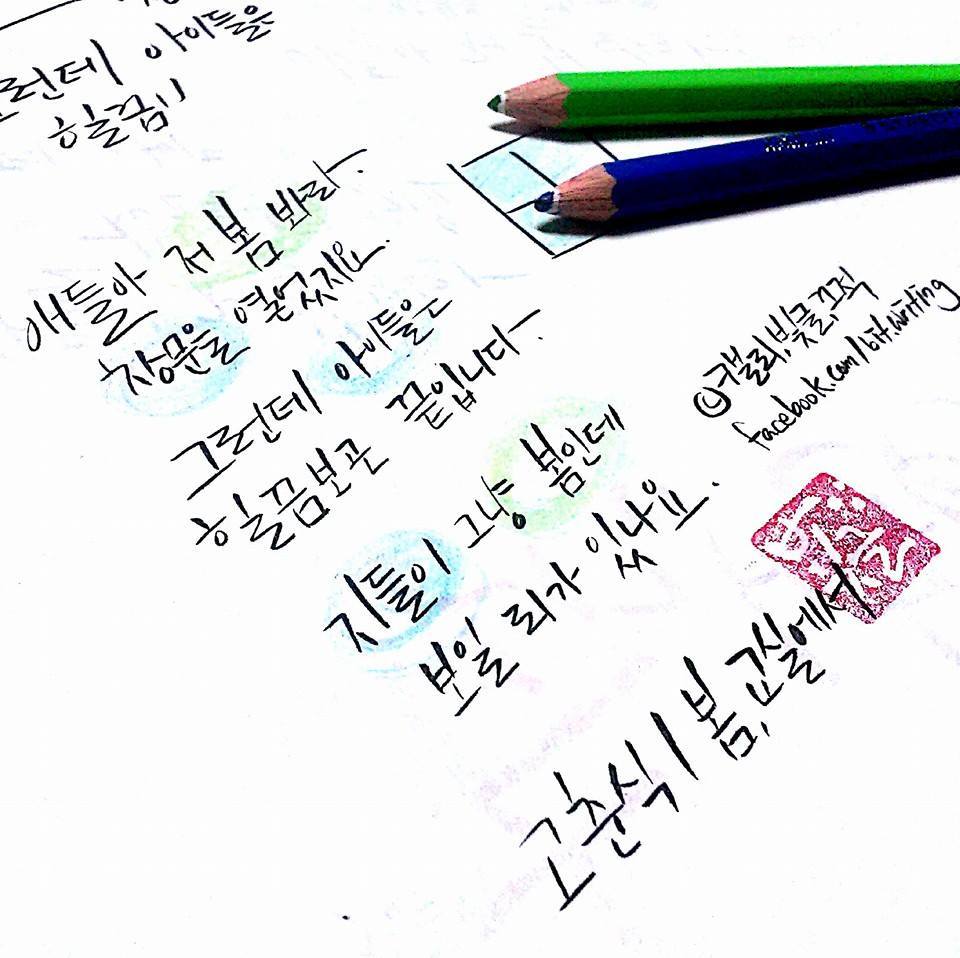 그런데 아이들은
힐끔
애들아 저 봄 봐라.
창문을 열었지요.
그런데 아이들은
힐끔보곤 끝입니다.
지들이 그냥 봄인데
보일 리가 있나요.
고춘식 | 봄, 교실에서
©캘리, 빛글끄적
facebook.com/bit.writing